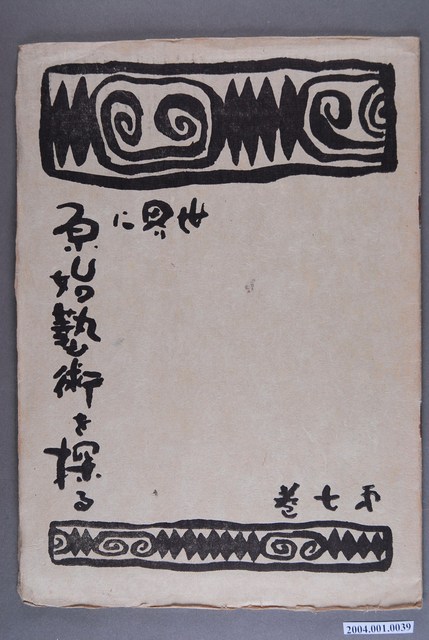 世界に
原始藝術を探る
第七卷
2004.001.0039